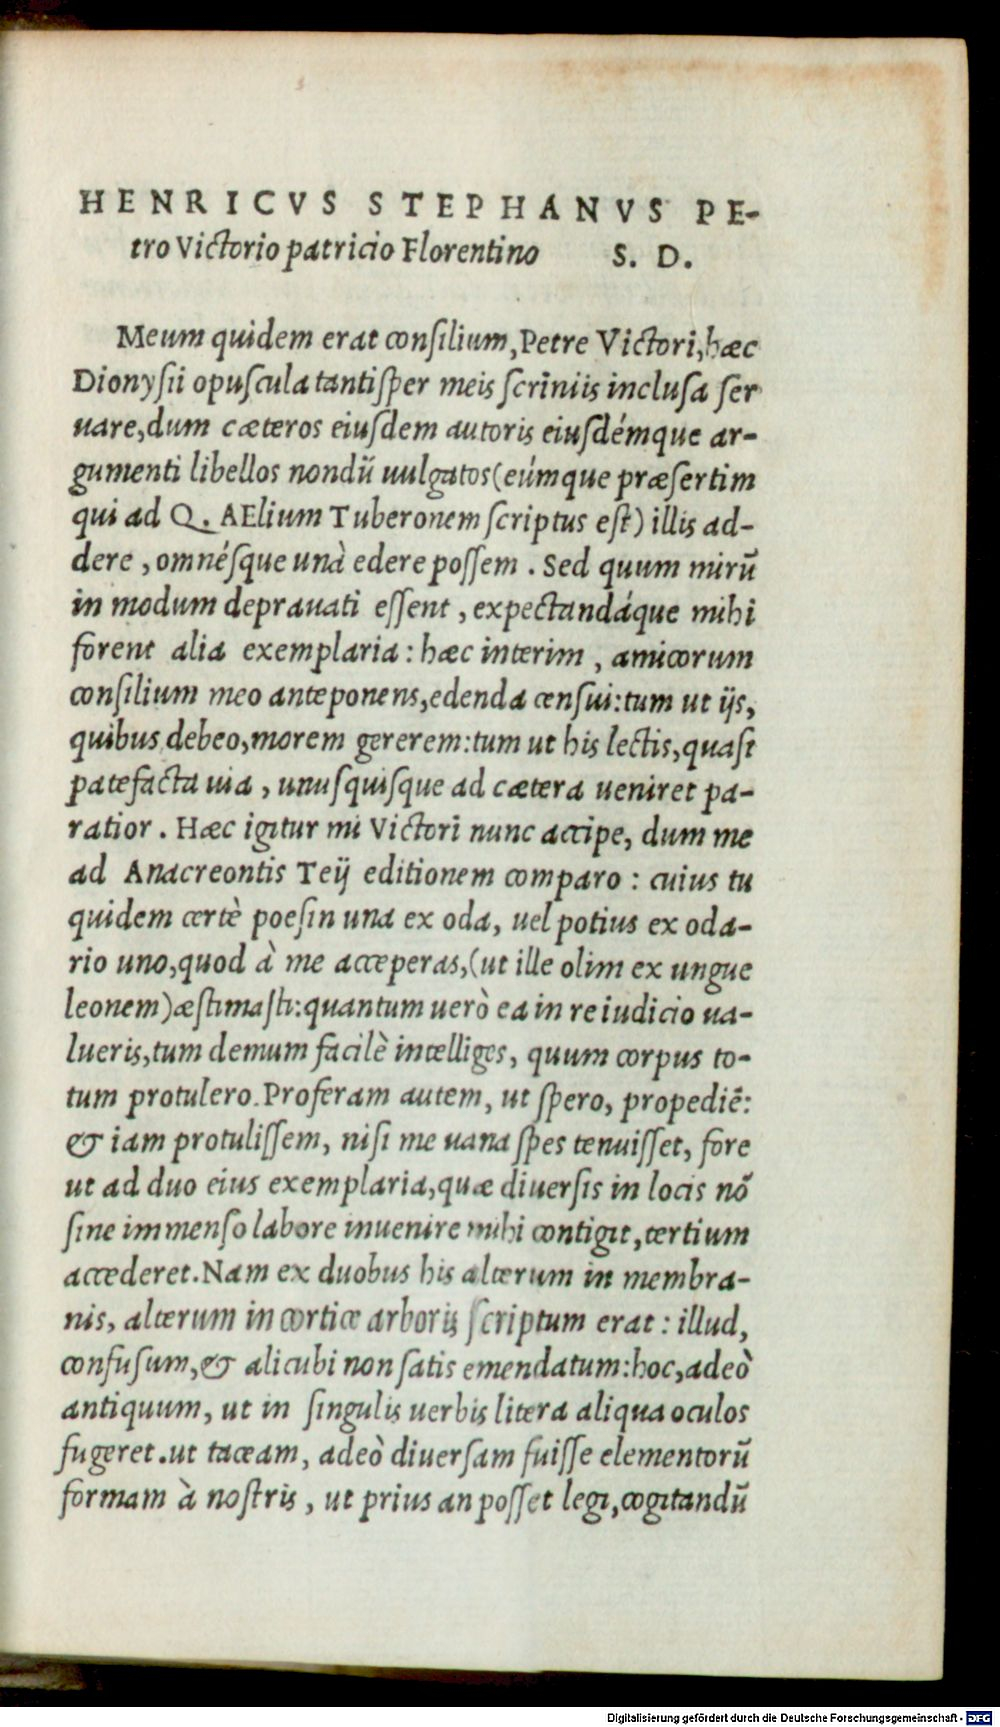 HENRICVS STEPHANVS PE-
tro Victorio patricio Florentino S. D.
Meum quidem erat consilium, Petre Victori, hæc
Dionysii opuscula tantisper meis scriniis inclusa ser
uare, dum cæteros eiusdem autoris eiusdémque ar-
gumenti libellos nondū uulgatos (eúmque præsertim
qui ad Q. AElium Tuberonem scriptus est) illis ad-
dere, omnésque unà edere possem. Sed quum mirū
in modum deprauati essent, expectandáque mihi
forent alia exemplaria: hæc interim, amicorum
consilium meo anteponens, edenda censui: tum ut ijs,
quibus debeo, morem gererem: tum ut his lectis, quasi
patefacta uia, unusquisque ad cætera ueniret pa-
ratior. Hæc igitur mi Victori nunc accipe, dum me
ad Anacreontis Teij editionem comparo: cuius tu
quidem certè poesin una ex oda, uel potius ex oda-
rio uno, quod à me acceperas, (ut ille olim ex ungue
leonem) æstimasti: quantum uerò ea in re iudicio ua-
lueris, tum demum facilè intelliges, quum corpus to-
tum protulero. Proferam autem, ut spero, propediē:
& iam protulissem, nisi me uana spes tenuisset, fore
ut ad duo eius exemplaria, quæ diuersis in locis nō
sine immenso labore inuenire mihi contigit, tertium
accederet. Nam ex duobus his alterum in membra-
nis, alterum in cortice arboris scriptum erat: illud,
confusum, & alicubi non satis emendatum: hoc, adeò
antiquum, ut in singulis uerbis litera aliqua oculos
fugeret. ut taceam, adeò diuersam fuisse elementorū
formam à nostris, ut prius an posset legi, cogitandū
Digitalisierung gefördert durch die Deutsche Forschungsgemeinschaft - DFG